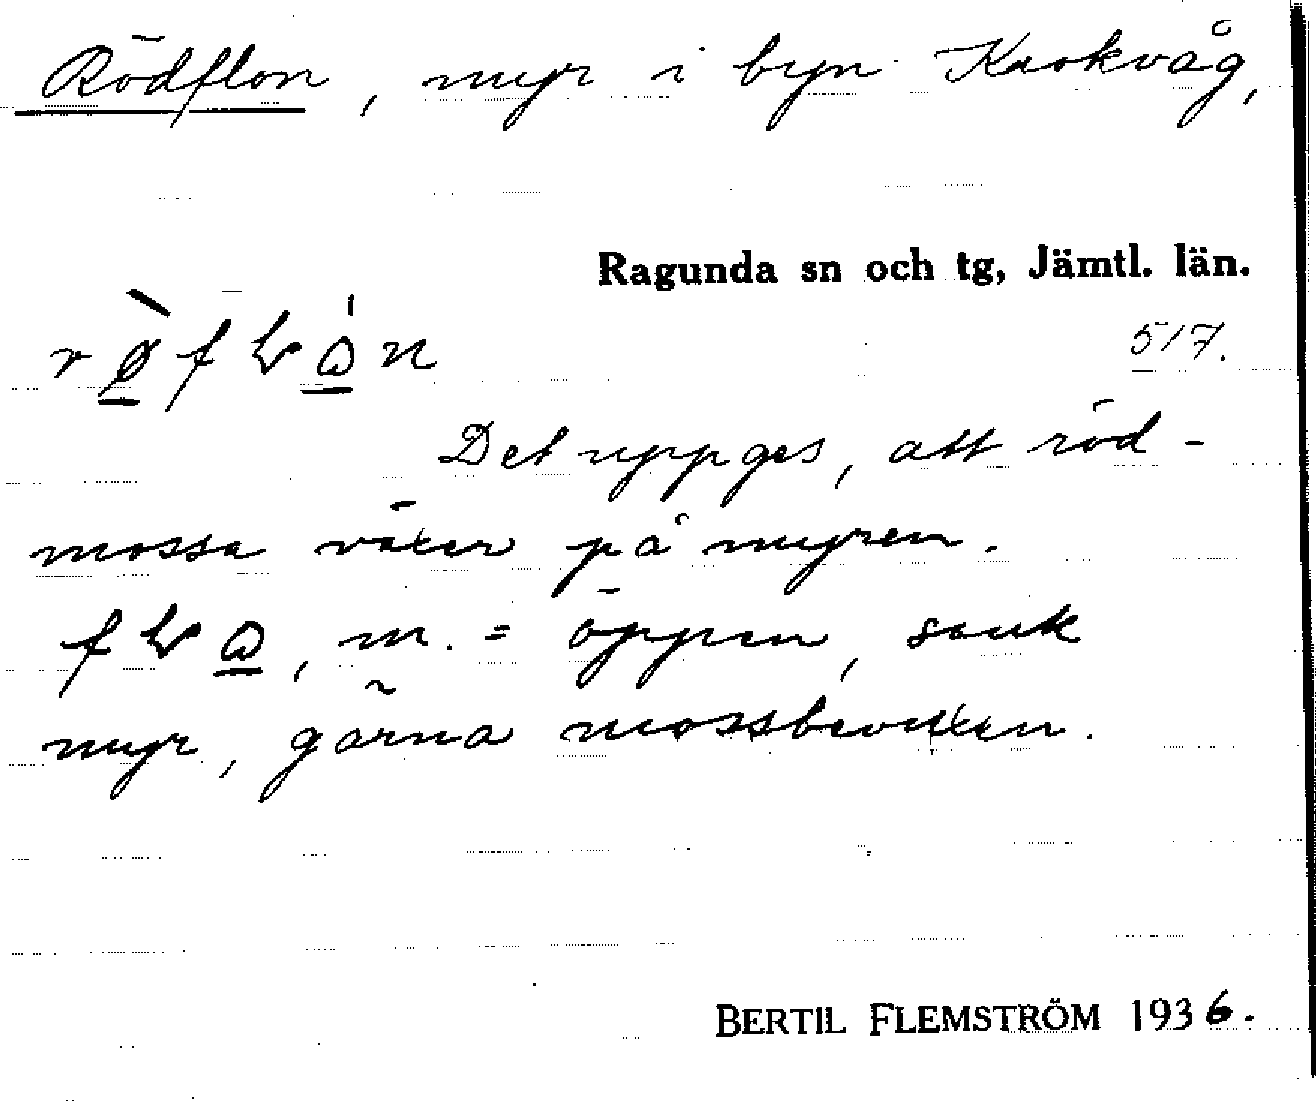 Rödflon, myr i byn Krokvåg,
Ragunda sn och tg, Jämtl. län.
517.
Det uppges, att röd-
mossa växer på myren.
, m. = öppen, sank
myr, gärna mossbevuxen.
BERTIL FLEMSTRÖM 1936.